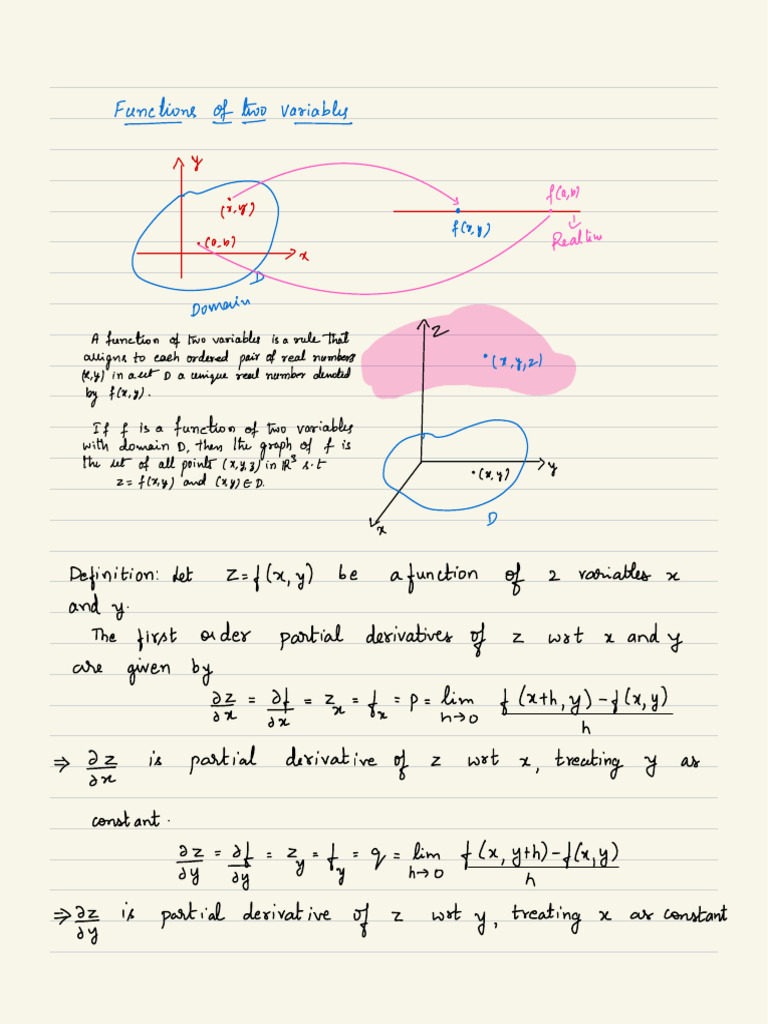 Functions of two variables
y
(x,y)
(a,b)
x
D
Domain
f(x,y)
f(a,b)
Real line
A function of two variables is a rule that
assigns to each ordered pair of real numbers
(x,y) in a set D a unique real number denoted
by f(x,y).
If f is a function of two variables
with domain D, then the graph of f is
the set of all points (x,y,z) in ℝ³ s.t
z = f(x,y) and (x,y) ∈ D.
z
(x,y,z)
(x,y)
y
x
D
Definition: Let z = f(x, y) be a function of 2 variables x
and y.
The first order partial derivatives of z wrt x and y
are given by
∂z/∂x = ∂f/∂x = z_x = f_x = p = lim h→0 f(x+h, y) - f(x,y) / h
⇒ ∂z/∂x is partial derivative of z wrt x, treating y as
constant.
∂z/∂y = ∂f/∂y = z_y = f_y = q = lim h→0 f(x, y+h) - f(x,y) / h
⇒ ∂z/∂y is partial derivative of z wrt y, treating x as constant